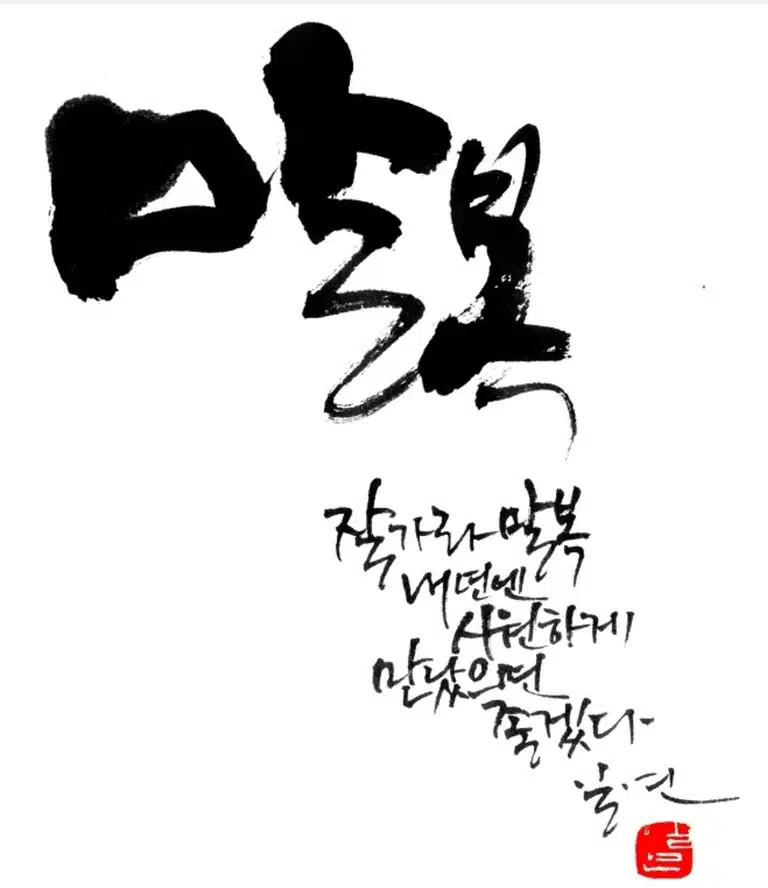 말복
잘가라 말복
내년엔
시원하게
만났으면
좋겠다